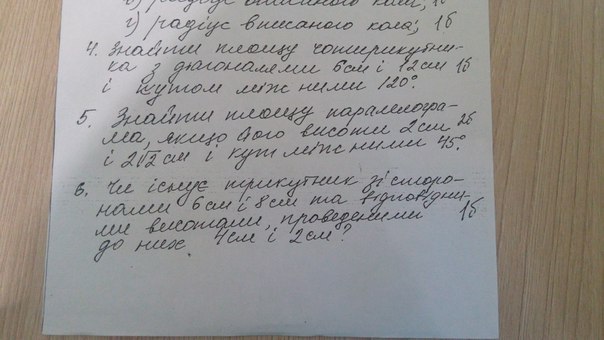 в) радіус описаного кола; 1б
г) радіус вписаного кола; 1б
4. Знайти площу чотирикутни-
ка з діагоналями 6см і 12см 1б
і кутом між ними 120°.
5. Знайти площу паралелогра-
ма, якщо його висоти 2см 2б
і 2√2 см і кут між ними 45°.
6. Чи існує трикутник зі сторо-
нами 6см і 8см та відповідни-
ми висотами, проведеними 1б
до них 4см і 2см?